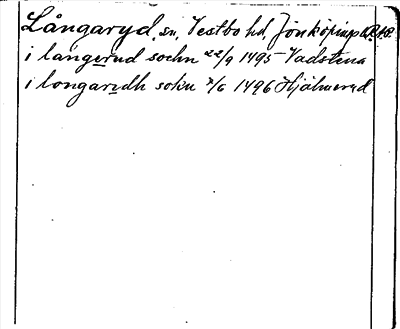 Långaryd, sn, Vestbo hd, Jönköpings
i langerud sochn 22/9 1495 Vadstena
i longaridh sokn 7/6 1496 Hjälmeryd